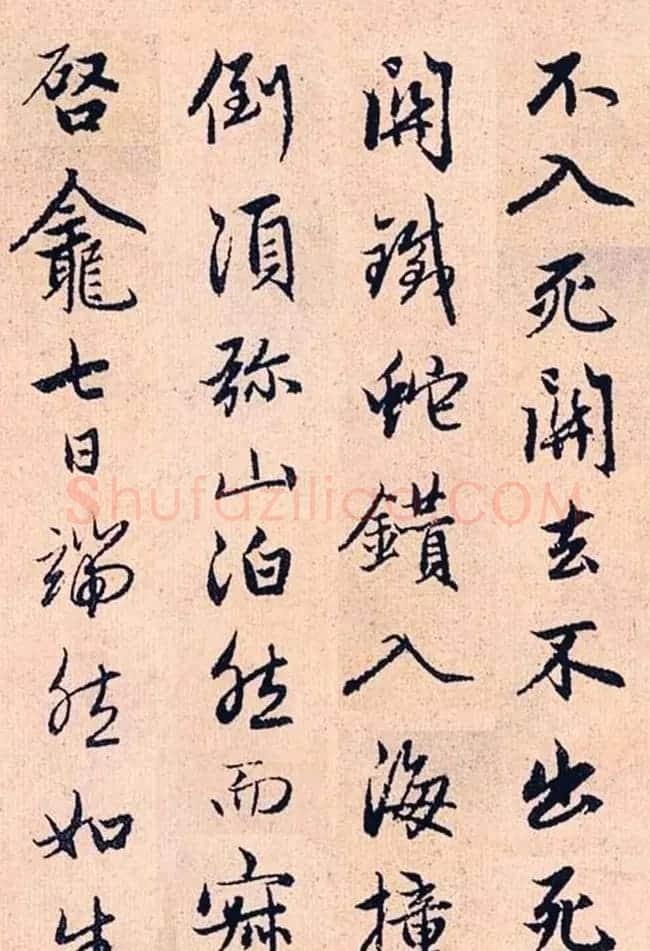 不入死關去不出死
關鐵蛇鑽入海撞
倒須弥山泊然而寐
啓龕七日端然如生
Shufaziliao.COM